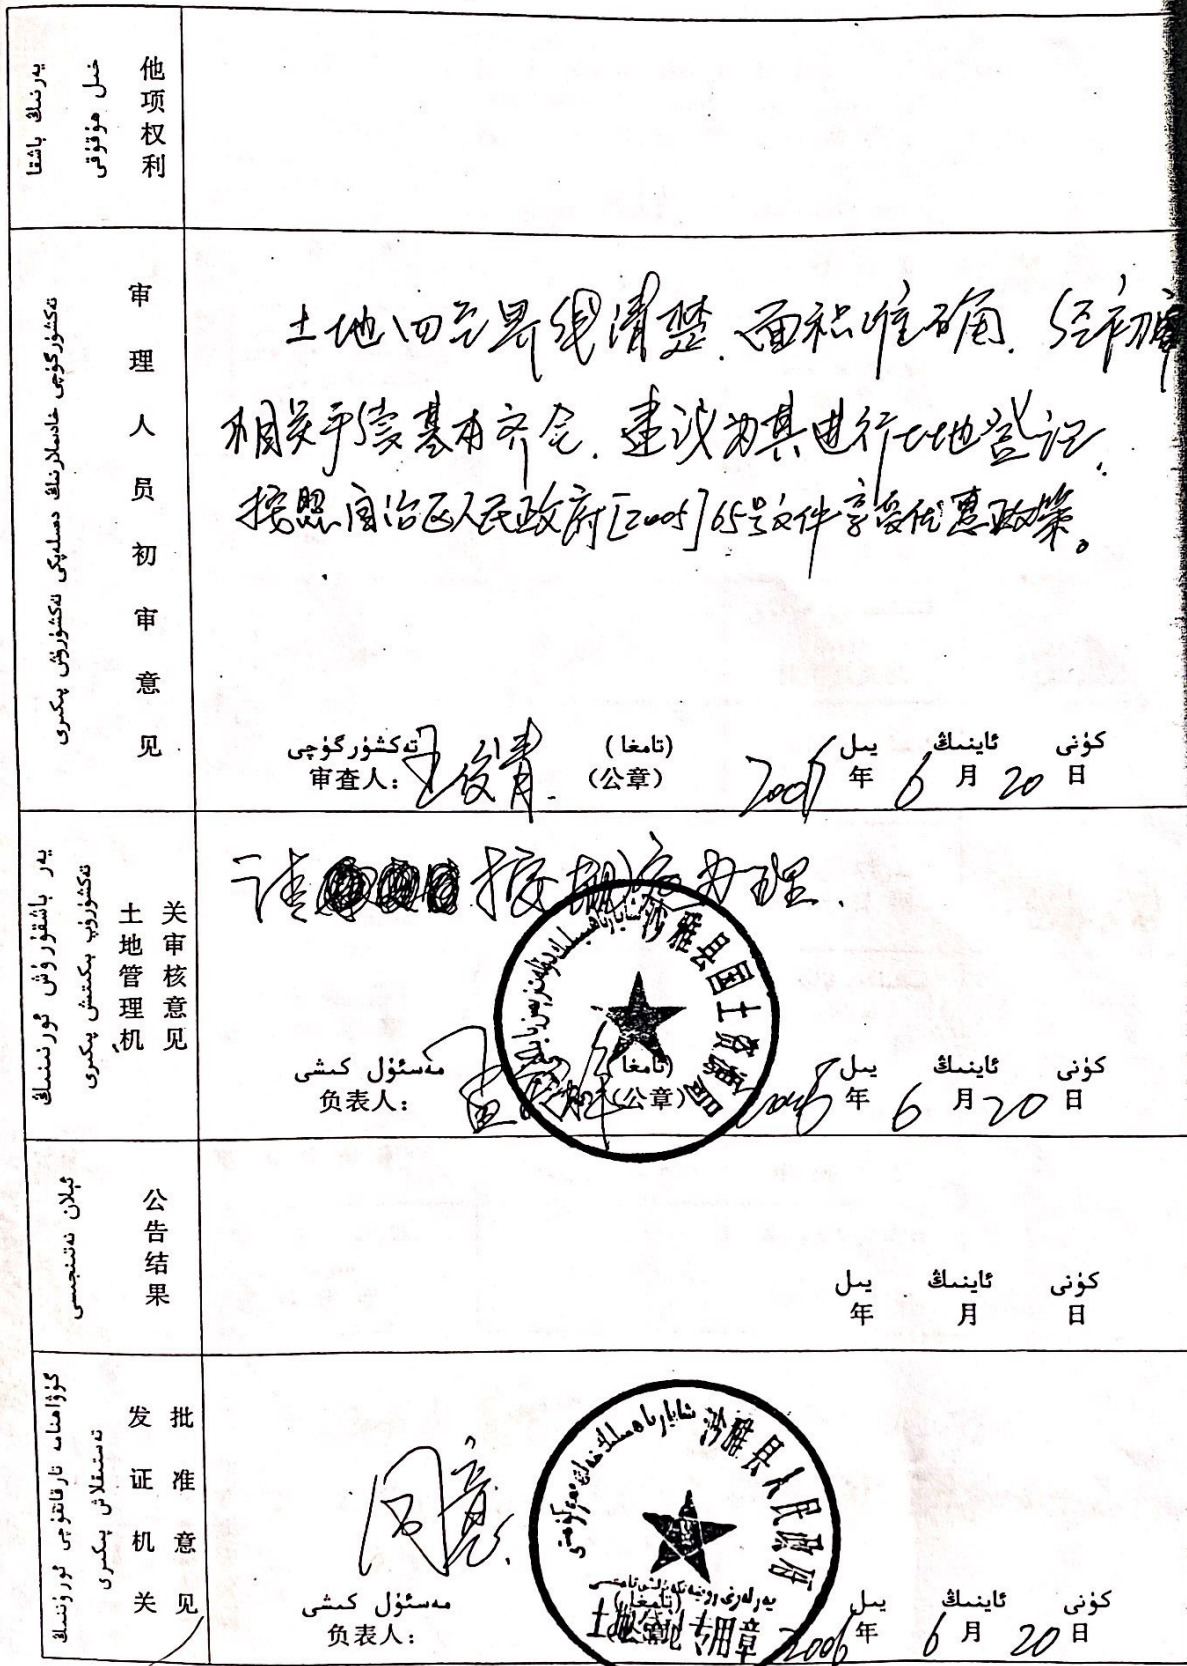 يەرنىڭ باشقا
خىل ھوقۇقى
他项权利
تەكشۈرگۈچى خادىملارنىڭ دەسلەپكى تەكشۈرۈش پىكىرى
审理人员初审意见
土地四至界线清楚、面积准确、经初审
相关手续基本齐全、建议为其进行土地登记、
按照自治区人民政府[2005]65号文件享受优惠政策。
تەكشۈرگۈچى (تامغا) يىل ئاينىڭ كۈنى
审查人：王俊青. (公章) 2006年6月20日
يەر باشقۇرۇش ئورنىنىڭ
تەكشۈرۈپ بېكىتىش پىكىرى
土地管理机
关审核意见
请按规定办理.
沙雅县国土资源局
مەسئۇل كىشى (تامغا) يىل ئاينىڭ كۈنى
负表人： (公章) 2006年6月20日
ئېلان نەتىجىسى
公告结果
يىل ئاينىڭ كۈنى
年 月 日
گۇۋاھنامە تارقاتقۇچى ئورۇننىڭ
تەستىقلاش پىكىرى
发证机关
批准意见
同意.
沙雅县人民政府
土地登记专用章
مەسئۇل كىشى (تامغا) يىل ئاينىڭ كۈنى
负表人： 2006年6月20日